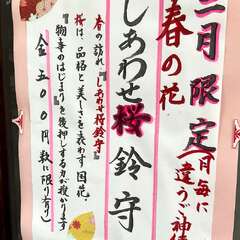 三月限定
(月毎に違うご神
春の花
しあわせ桜鈴守
春の訪れ『しあわせ桜鈴守』
桜は、品格と美しさを表わす国花。
『物事のはじまりを後押しする力が授かります
金五〇〇円 数に限り有り)